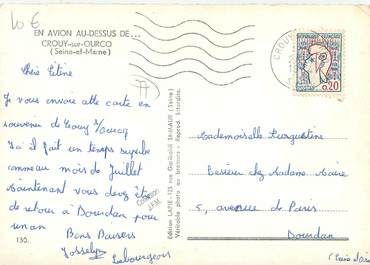 10 €
EN AVION AU-DESSUS DE...
CROUY-sur-OURCQ
(Seine-et-Marne)
Chère Titine
Je vous envoie cette carte en
souvenir de Crouy s/ourcq
J'ai il fait un temps superbe
comme au mois de Juillet
Maintenant vous devez être
de retour à Dourdan pour
un an
Bons Baisers
Josselyne
Lebourgeois
130.
Edition LAPIE - 125 rue Garibaldi ST-MAUR (Seine)
Véritable photo au bromure - Reprod. Interdite.
Collection
CROUY
REPUBLIQUE FRANCAISE
POSTES
0,20
Mademoiselle
chez Madame
5, avenue de Paris
Dourdan